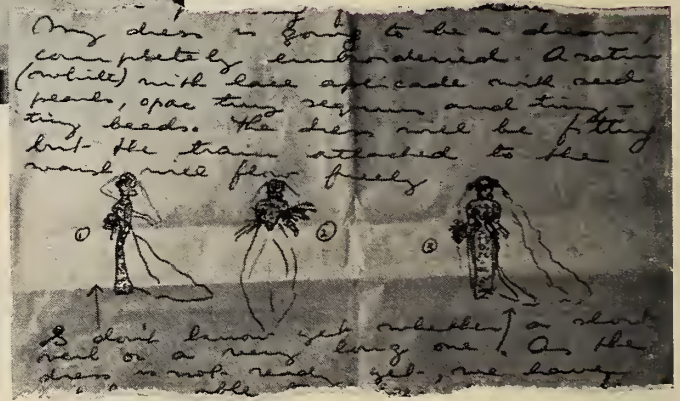 My dress is going to be a dream,
completely embroidered. A satin
(white) with lace aplicade with seed
pearls, opac tiny sequins and tiny –
tiny beads. The dress will be fitting
but the train attached to the
waist will flow freely
① ② ③
I don't know yet whether a short
veil or a very long one. As the
dress is not ready yet, we have